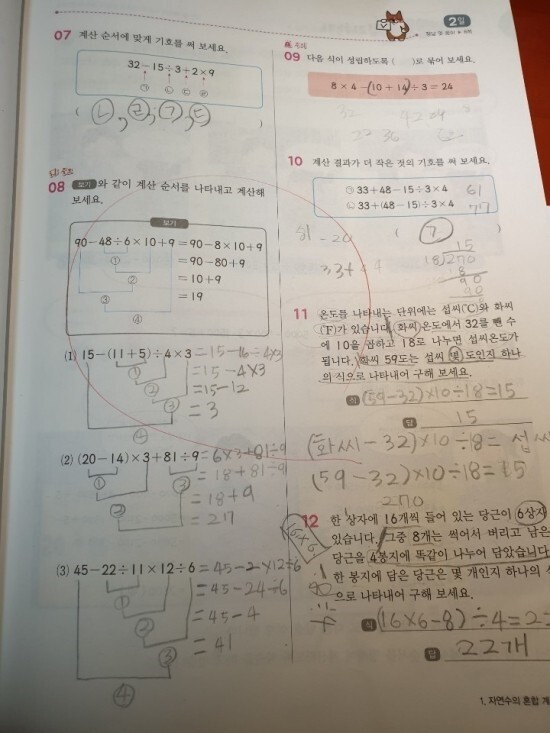 2일
07 계산 순서에 맞게 기호를 써 보세요.
32－15÷3＋2×9
㉠ ㉡ ㉢ ㉣
( ㉡, ㉣, ㉠, ㉢ )
08 보기 와 같이 계산 순서를 나타내고 계산해
보세요.
보기
90－48÷6×10＋9＝90－8×10＋9
＝90－80＋9
＝10＋9
＝19
①
②
③
④
(1) 15－(11＋5)÷4×3 =15-16÷4×3
=15-4×3
=15-12
=3
①
②
③
④
(2) (20－14)×3＋81÷9 =6×3+81÷9
=18+81÷9
=18+9
=27
①
②
(3) 45－22÷11×12÷6 =45-2×12÷6
=45-24÷6
=45-4
=41
①
②
③
④
09 다음 식이 성립하도록 ( )로 묶어 보세요.
8×4－(10＋14)÷3＝24
10 계산 결과가 더 작은 것의 기호를 써 보세요.
㉠ 33＋48－15÷3×4 61
㉡ 33＋(48－15)÷3×4 77
( ㉠ )
15
18)270
11 온도를 나타내는 단위에는 섭씨(℃)와 화씨
(℉)가 있습니다. 화씨온도에서 32를 뺀 수
에 10을 곱하고 18로 나누면 섭씨온도가
됩니다. 화씨 59도는 섭씨 몇 도인지 하나
의 식으로 나타내어 구해 보세요.
식 (59-32)×10÷18=15
답 15
(화씨-32)×10÷18= 섭씨
(59-32)×10÷18=15
270
12 한 상자에 16개씩 들어 있는 당근이 6상자
있습니다. 그중 8개는 썩어서 버리고 남은
당근을 4봉지에 똑같이 나누어 담았습니다.
한 봉지에 담은 당근은 몇 개인지 하나의 식
으로 나타내어 구해 보세요.
식 (16×6-8)÷4=22
답 22개
1. 자연수의 혼합 계